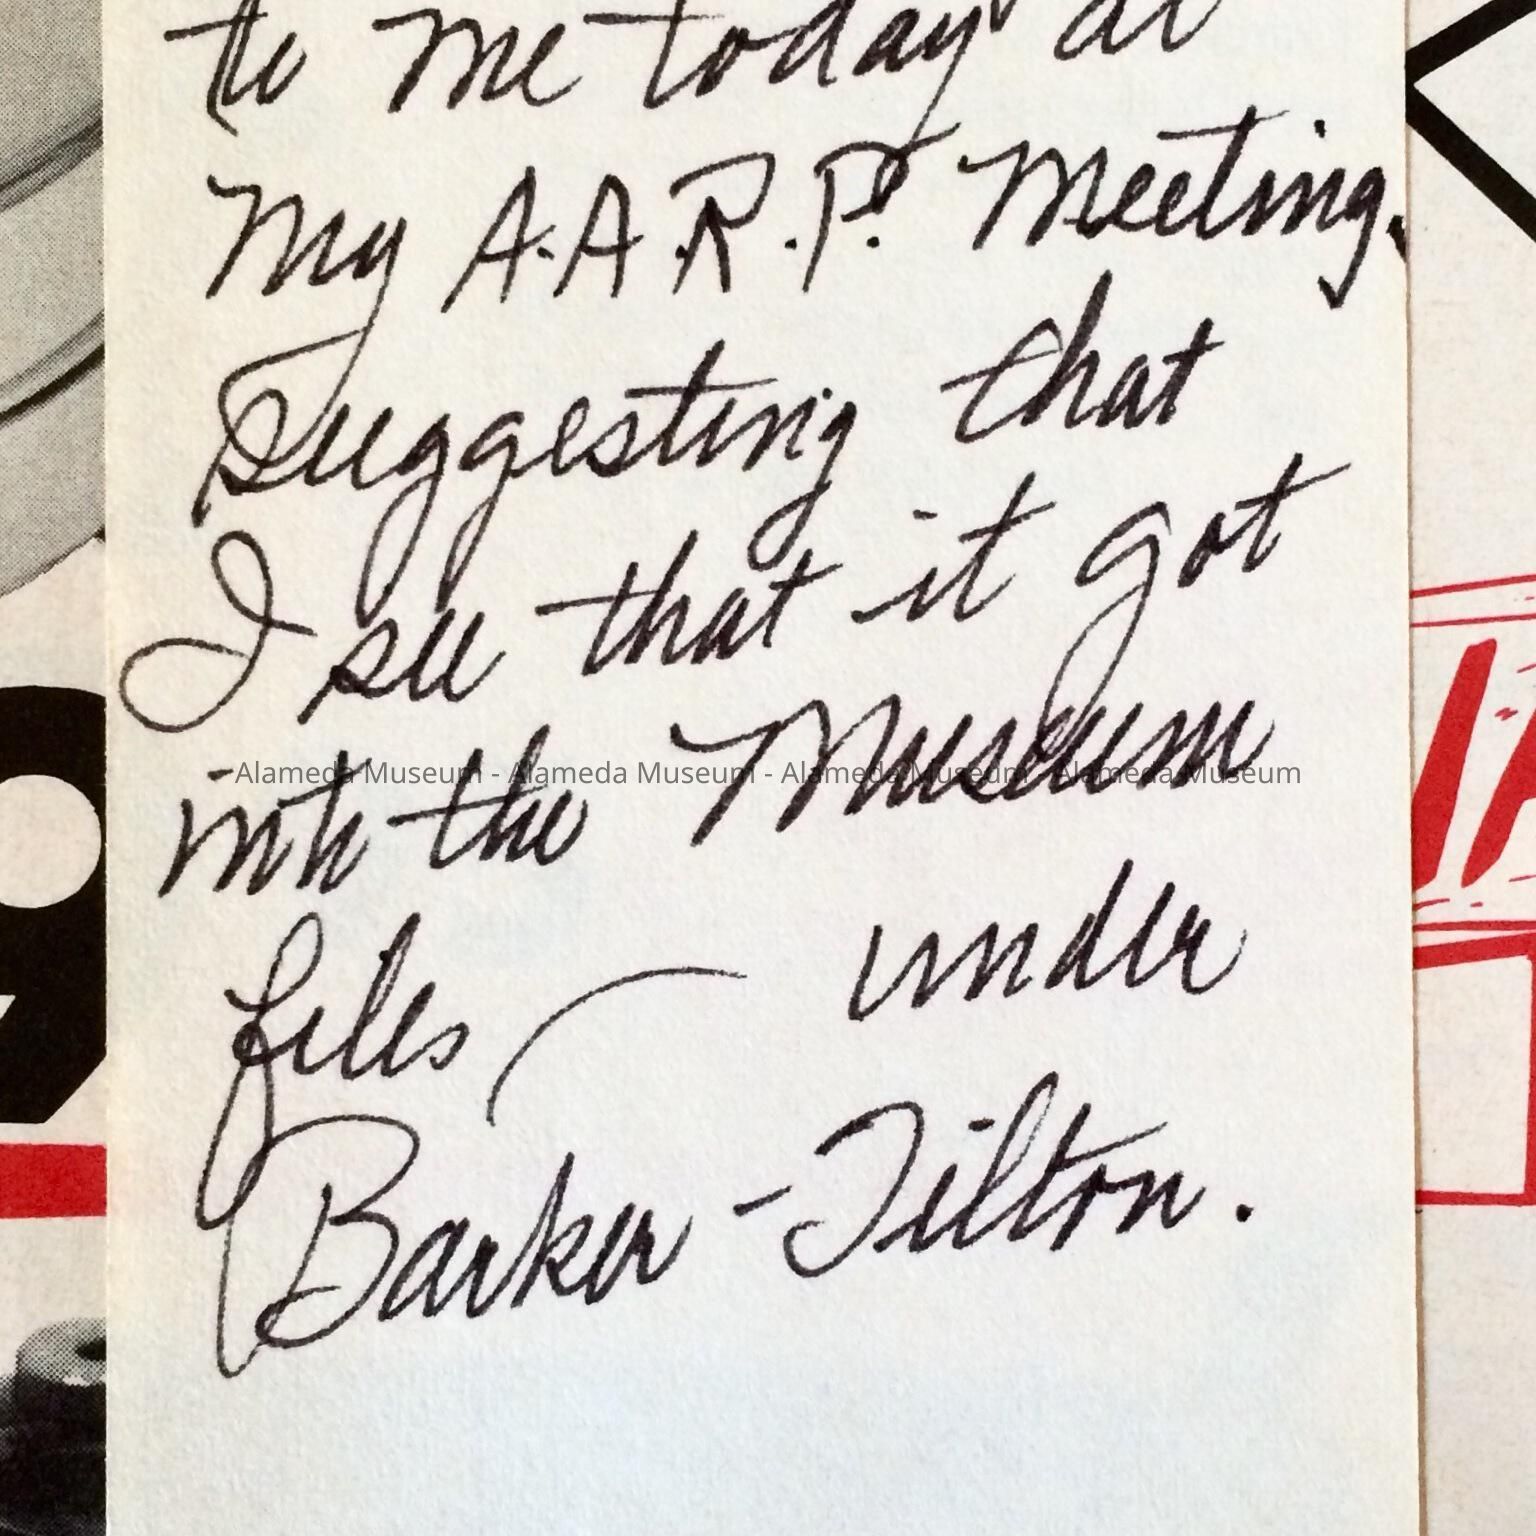 to me today at
my A.A.R.P. meeting,
suggesting that
I see that it got
into the Museum
Alameda Museum - Alameda Museum - Alameda Museum - Alameda Museum
files — under
Barker - Tilton.
9